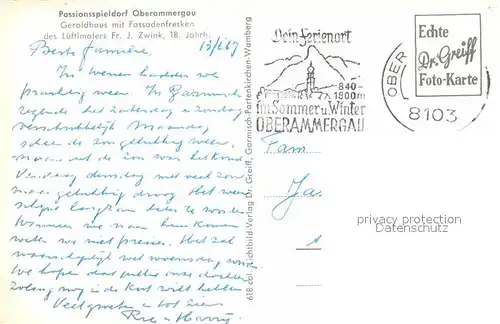 Passionsspieldorf Oberammergau
Geroldhaus mit Fassadenfresken
des Lüftlmalers Fr. J. Zwink, 18. Jahrh.
Beste familie, 13/2 67
In Wenen hadden we
prachtig weer. In Garmisch
regende het Zaterdag en Zondag
verschrikkelijk Maandag
scheen de zon gelukkig weer,
de zon was het koud
dinsdag met veel zon
maar gelukkig droog Het weer
langzaam beter te worden
Wanneer we naar huis komen
weten we niet precies. Het zal
waarschijnlijk wel woensdag worden
We hopen dat jullie onze dochter
zolang nog in de kost wilt hebben
Veel groeten en tot ziens
Rie en Harry
618 col. Lichtbild-Verlag Dr. Greiff, Garmisch-Partenkirchen-Wamberg
Dein Ferienort
840-
1800m
im Sommer u. Winter
OBERAMMERGAU
OBER
8103
Echte
Dr. Greiff
Foto-Karte
Fam
Ja
privacy protection
Watermark